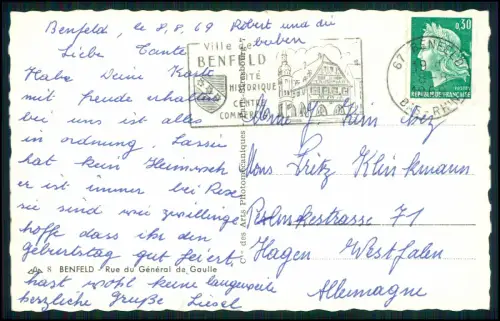 Benfeld, le 8.8.69 Robert und die
buben
Liebe Tante
Habe Deine Karte
mit freude erhalten
bei uns ist alles
in ordnung.
hat kein Heimweh
er ist immer bei
sie sind wie zwillinge
hoffe dass ihr den
Geburtstag gut feiert.
hast wohl keine langeweile
herzliche Grüße Liesel
8 BENFELD - Rue du Général de Gaulle
des Arts Photomécaniques
Ville de
BENFELD
CITÉ
HISTORIQUE
CENTRE
COMMERCIAL
67 BENFELD
BAS-RHIN
0,30
REPUBLIQUE FRANÇAISE
Mons Fritz Klinkmann
71
Hagen Westfalen
Allemagne